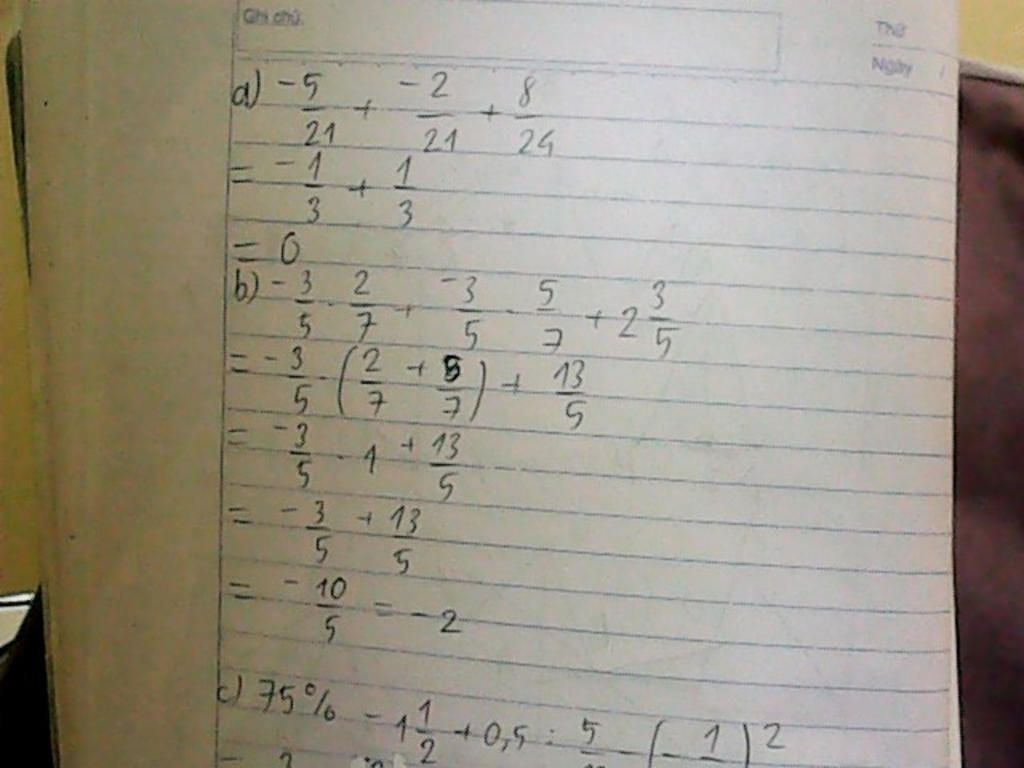 Ghi chú:
Thứ
Ngày /
a) -5/21 + -2/21 + 8/24
= -1/3 + 1/3
= 0
b) -3/5 . 2/7 + -3/5 . 5/7 + 2 3/5
= -3/5 . (2/7 + 5/7) + 13/5
= -3/5 . 1 + 13/5
= -3/5 + 13/5
= -10/5 = -2
c) 75% - 1 1/2 + 0,5 : 5